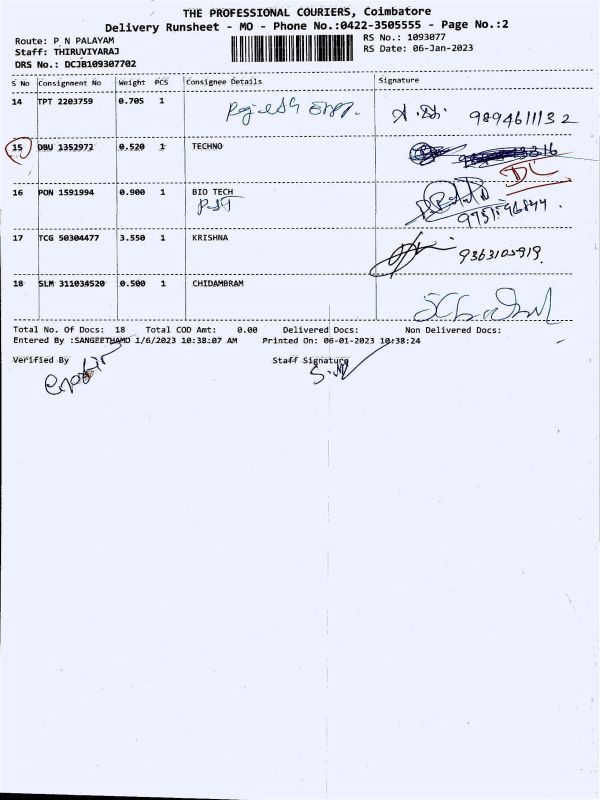 THE PROFESSIONAL COURIERS, Coimbatore
Delivery Runsheet - MO - Phone No.:0422-3505555 - Page No.:2
Route: P N PALAYAM RS No.: 1093077
Staff: THIRUVIYARAJ RS Date: 06-Jan-2023
DRS No.: DCJB109307702
S No Consignment No Weight PCS Consignee Details Signature
14 TPT 2203759 0.705 1 9894611132
15 DBU 1352972 0.520 1 TECHNO
DL
16 PON 1591994 0.900 1 BIO TECH
17 TCG 50304477 3.550 1 KRISHNA 9363105919
18 SLM 311034520 0.500 1 CHIDAMBRAM
Total No. Of Docs: 18 Total COD Amt: 0.00 Delivered Docs: Non Delivered Docs:
Entered By :SANGEETHAMO 1/6/2023 10:38:07 AM Printed On: 06-01-2023 10:38:24
Verified By Staff Signature